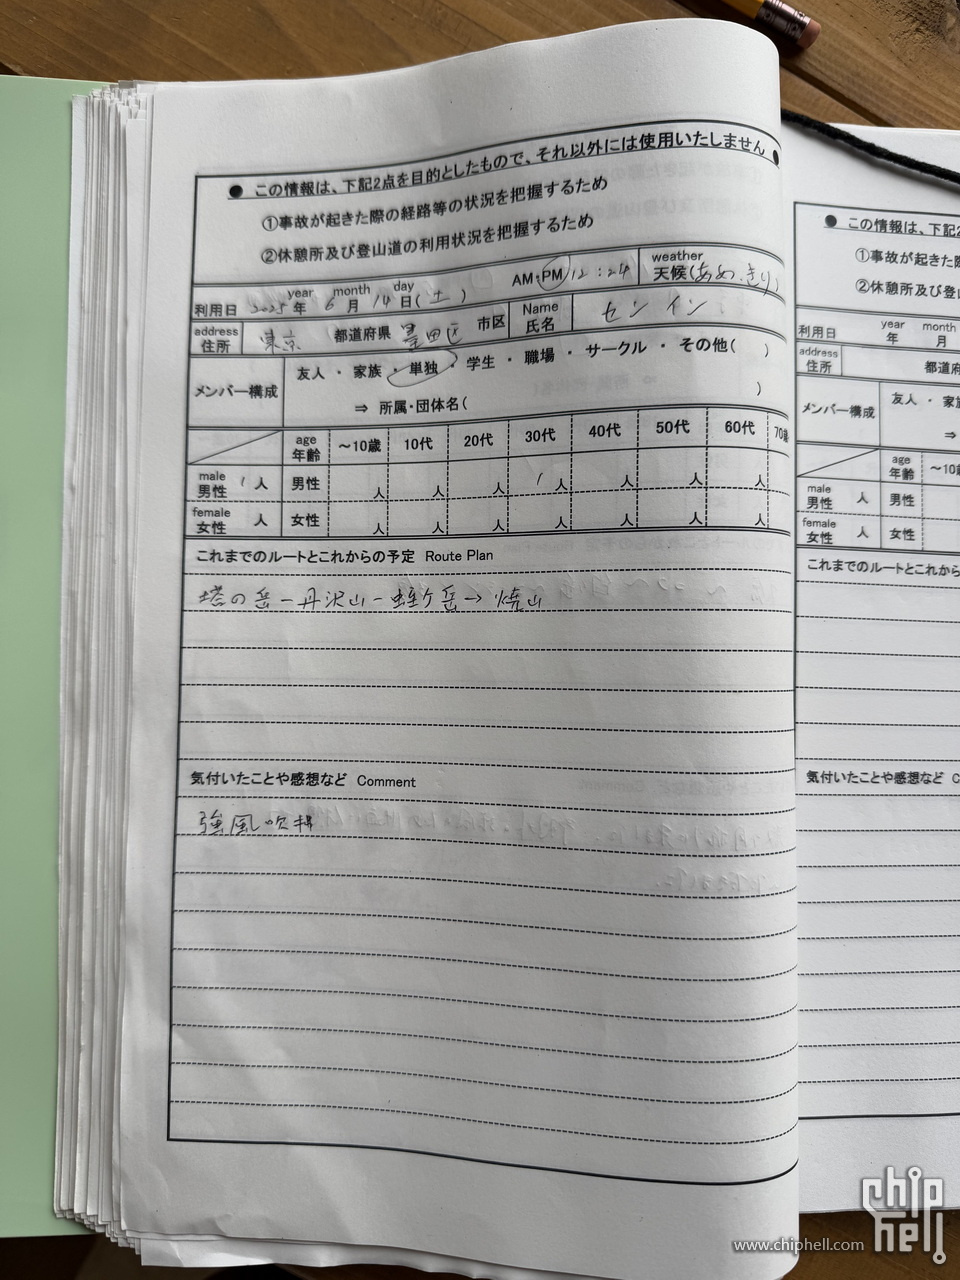 ● この情報は、下記2点を目的としたもので、それ以外には使用いたしません ●
①事故が起きた際の経路等の状況を把握するため
②休憩所及び登山道の利用状況を把握するため
利用日 2025 year 年 6 month 月 14 day 日(土) AM・PM 12:24 weather 天候(あめ、きり)
address 住所 東京 都道府県 墨田区 市区 Name 氏名 センイン
メンバー構成 友人 ・ 家族 ・ 単独 ・ 学生 ・ 職場 ・ サークル ・ その他( )
⇒ 所属・団体名( )
age 年齢 ~10歳 10代 20代 30代 40代 50代 60代 70歳
male 男性 1 人 男性 人 人 人 1 人 人 人 人
female 女性 人 女性 人 人 人 人 人 人 人
これまでのルートとこれからの予定 Route Plan
塔の岳-丹沢山-蛭ヶ岳→焼山
気付いたことや感想など Comment
強風
● この情報は、下記2
①事故が起きた際
②休憩所及び登山
利用日 year 年 month 月
address 住所 都道府
メンバー構成 友人 ・ 家
⇒
age 年齢 ~10歳
male 男性 人 男性
female 女性 人 女性
これまでのルートとこれから
気付いたことや感想など C
chip hell
www.chiphell.com